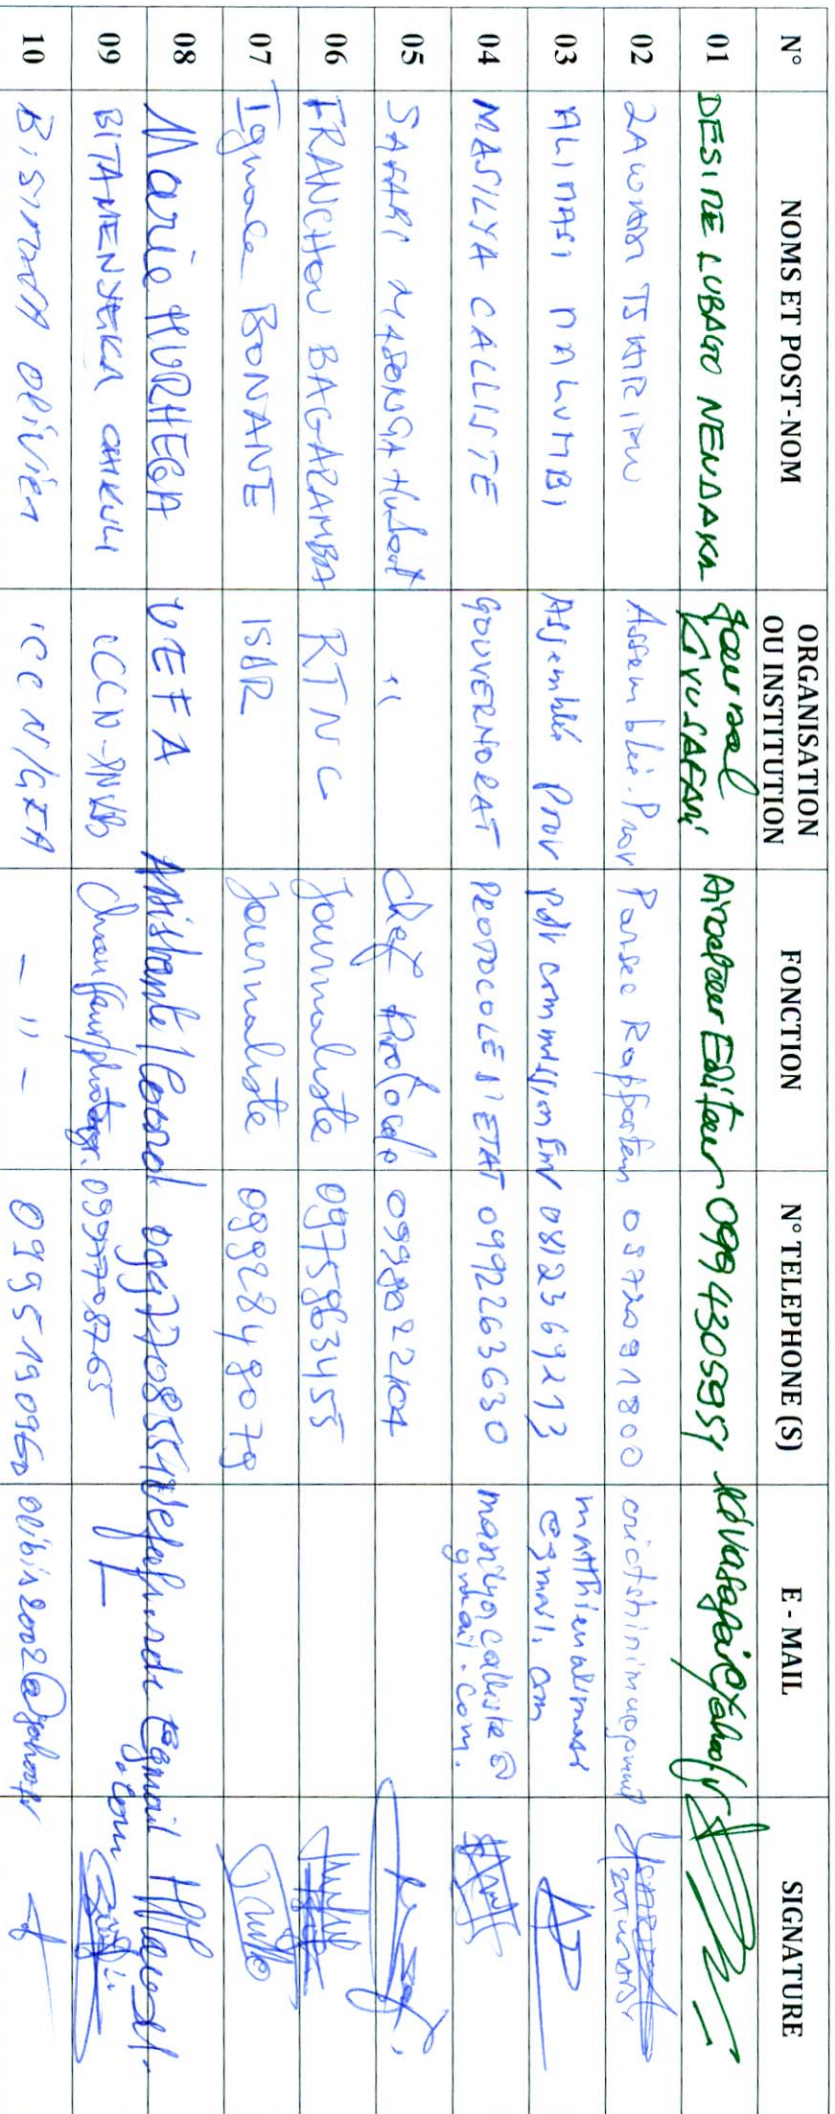 N° NOMS ET POST-NOM ORGANISATION OU INSTITUTION FONCTION N° TELEPHONE (S) E - MAIL SIGNATURE
01 DESIRE LUBAGO NENDAKA Journal Kivu SAFARI Directeur Editeur 0994305959
02 Assemblée Prov Rapporteur
03 ALIMASI MALUMBI Assemblée Prov pdt commission Env 0812369213 matthieualimasi @gmail.com
04 MASILYA CALLISTE GOUVERNORAT PROTOCOLE D'ETAT 0992263630 masilya.calliste@ gmail.com.
05 SAFARI MASONGA Hubert " Chef Protocole 0998022104
06 FRANCHOU BAGARAMBA RTNC Journaliste 0975863455
07 BONANE ISDR Journaliste 0992849079
08 Marie MURHEGA VEFA Assistante/Coord 0997708554 @gmail .com
09 BITAMENYEKA CHIKULI ICCN-PNKB Chauffeur/photogr. 0997708765 —
10 BISIMWA OLIVIER ICCN/GEA - " - 0995190960